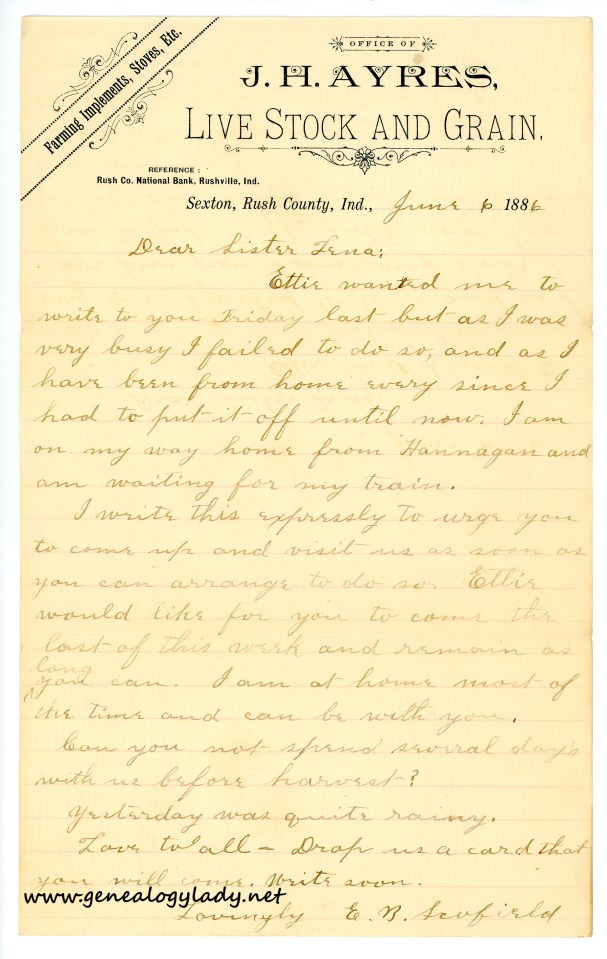 Farming Implements, Stoves, Etc.
OFFICE OF
J. H. AYRES,
LIVE STOCK AND GRAIN.
REFERENCE :
Rush Co. National Bank, Rushville, Ind.
Sexton, Rush County, Ind., June 6 1886
Dear Sister Lena;
Ettie wanted me to
write to you Friday last but as I was
very busy I failed to do so, and as I
have been from home every since I
had to put it off until now. I am
on my way home from Hannagan and
am waiting for my train.
I write this expressly to urge you
to come up and visit us as soon as
you can arrange to do so. Ettie
would like for you to come the
last of this week and remain as
long
you can. I am at home most of
the time and can be with you.
Can you not spend several day's
with us before harvest?
Yesterday was quite rainy.
Love to all – Drop us a card that
you will come. Write soon.
www.genealogylady.net
Lovingly E. B. Scofield